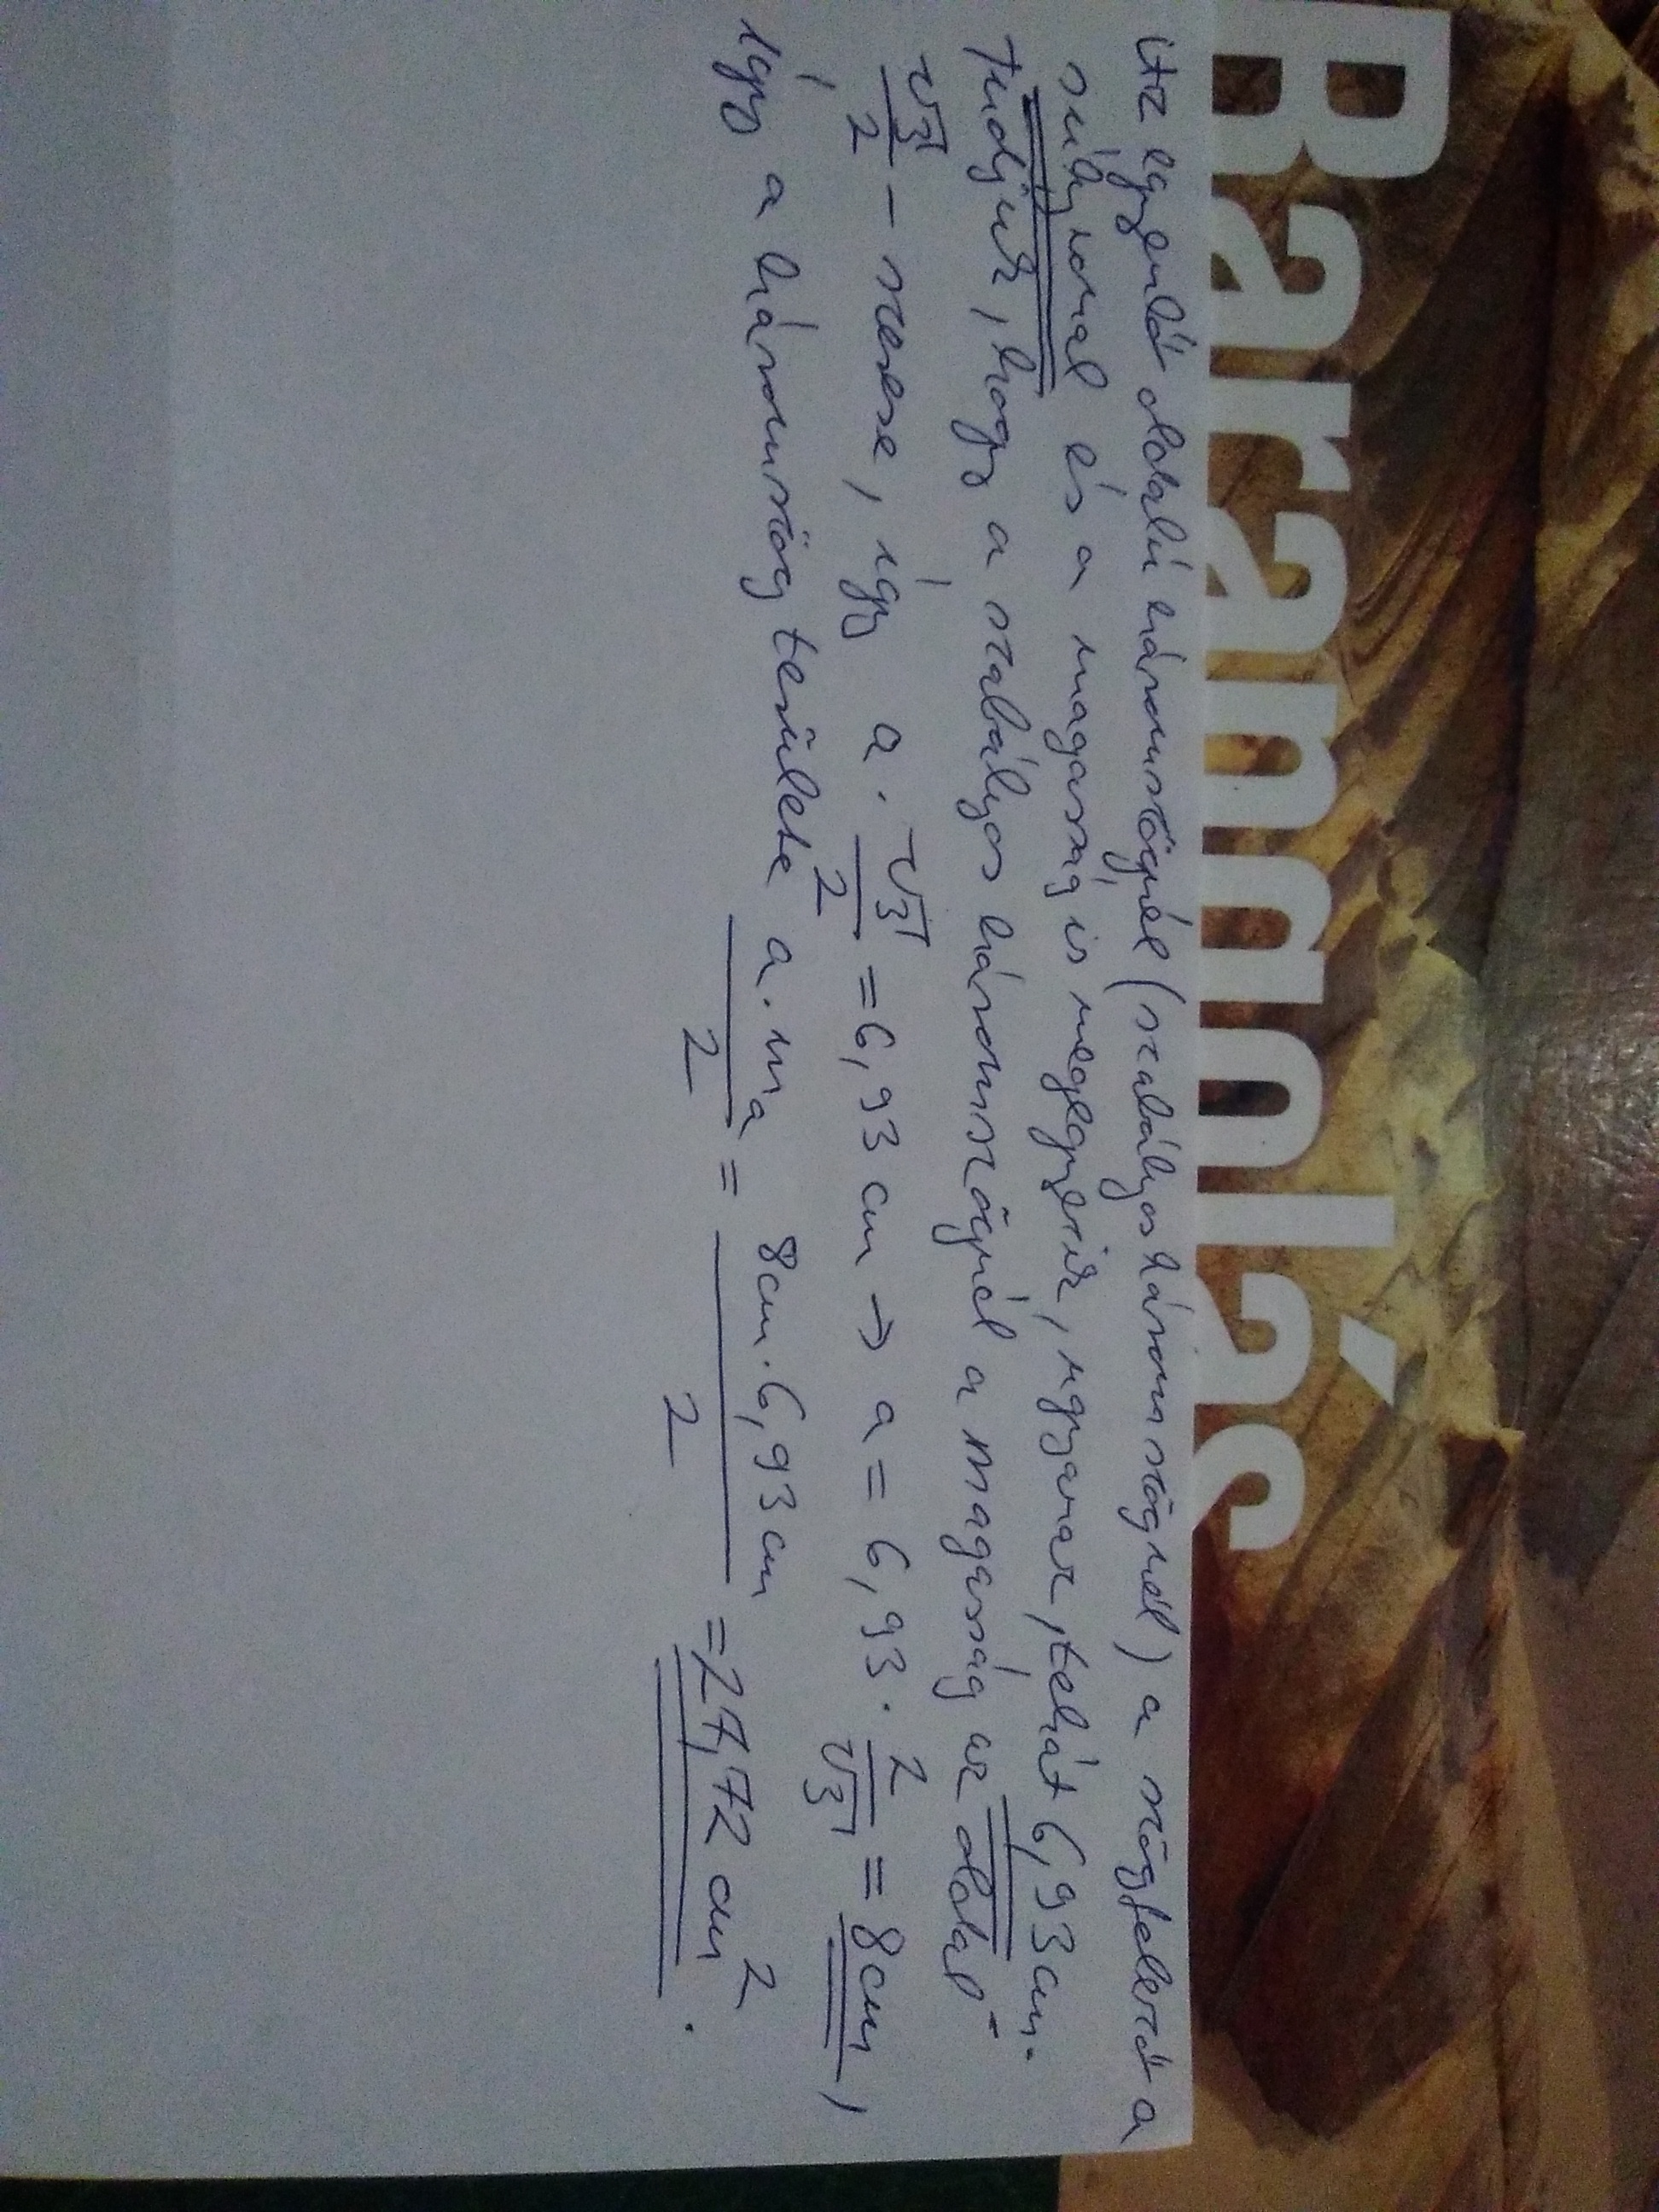 Barangolás
Az egyenlő oldalú háromszögnél (szabályos háromszögnél) a szögfelező a
súlyvonal és a magasság is megegyezik, ugyanaz, tehát 6,93 cm.
Tudjuk, hogy a szabályos háromszögnél a magasság az oldal
√3/2 - szerese, így a · √3/2 = 6,93 cm → a = 6,93 · 2/√3 = 8 cm,
Így a háromszög területe a · mₐ / 2 = 8 cm · 6,93 cm / 2 = 27,72 cm².